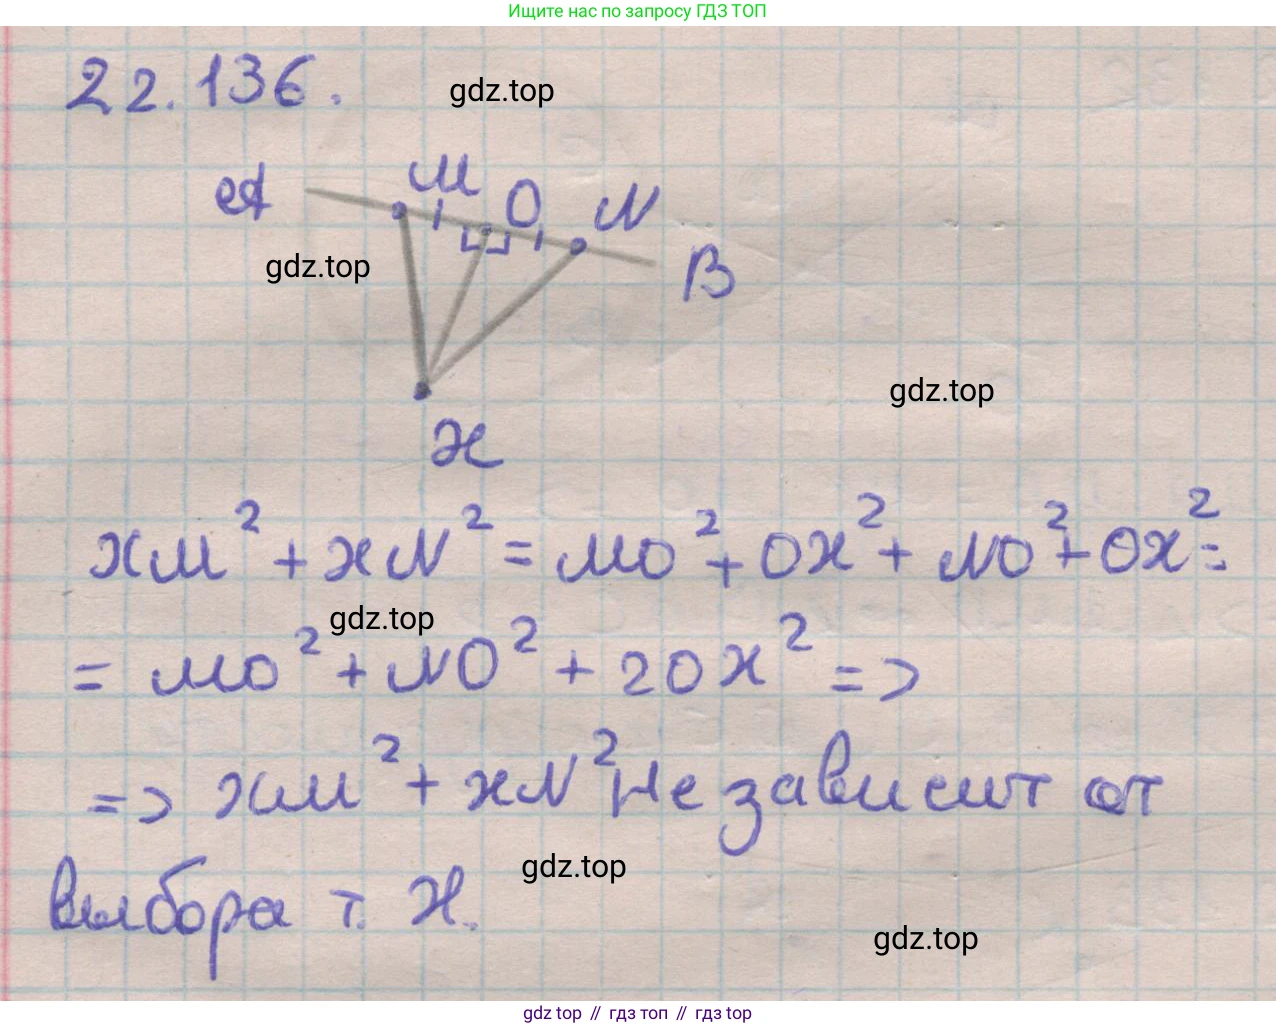 Ищите нас по запросу ГДЗ ТОП
22.136.
gdz.top
A M O N B
gdz.top
gdz.top
X
XM² + XN² = MO² + OX² + NO² + OX² =
gdz.top
= MO² + NO² + 2OX² =>
=> XM² + XN² не зависит от
gdz.top
выбора т. X.
gdz.top
gdz top // гдз топ // гдз top